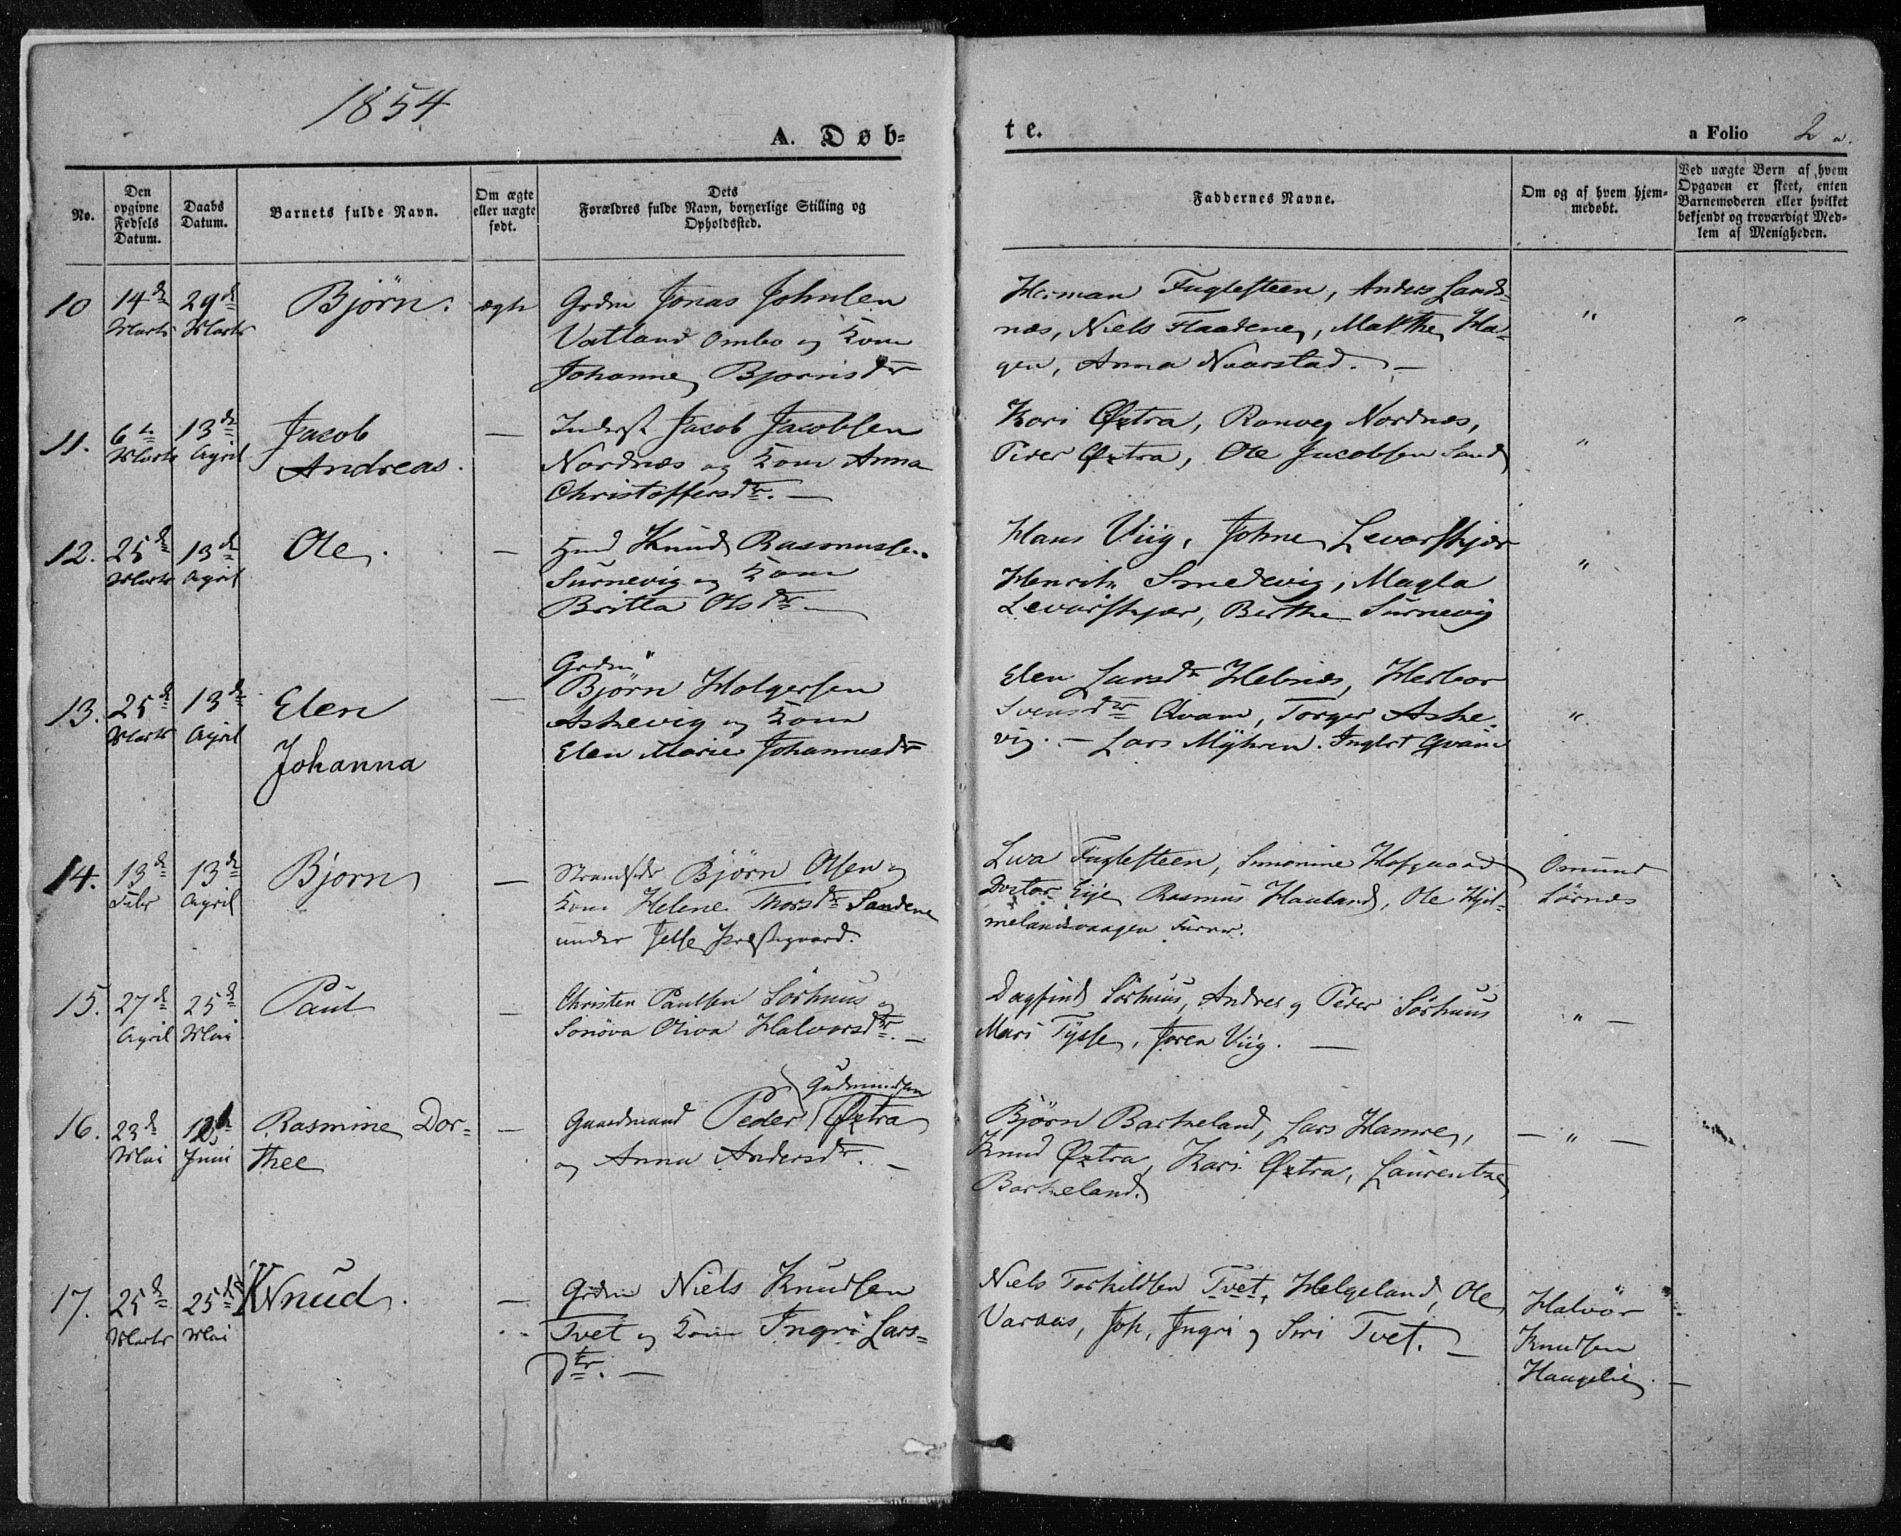 1854
A. Døb=
te.
a Folio 2 a.
No.
Den opgivne Fødsels Datum.
Daabs Datum.
Barnets fulde Navn.
Om ægte eller uægte født.
Dets Forældres fulde Navn, borgerlige Stilling og Opholdssted.
Faddernes Navne.
Om og af hvem hjem-
medøbt.
Ved uægte Børn af hvem
Opgaven er skeet, enten
Barnemoderen eller hvilket
bekjendt og troværdigt Med-
lem af Menigheden.
10
14de Marts
29de Marts
Björn.
ægte
Grdm Jonas Johnsen
Vatland Ombo og Kone
Johanne Bjornsdtr
Herman Fuglesteen, Anders Sands-
næs, Niels Flaadene, Malthe Ha-
gen, Anna Naarstad. –
"
"
11.
6te Marts
13de April
Jacob
Andreas.
—
Inderst Jacob Jacobsen
Nordnæs og Kone Anna
Christoffersdtr. —
Kari Øxtra, Ranveg Nordnæs,
Peder Øxtra, Ole Jacobsen Sand
"
12.
25de Marts
13de April
Ole.
—
Hmd Knud Rasmussen
Surnevig og Kone
Britta Olsdtr. —
Hans Viig, Johne Levarskjær
Henrik Smedevig, Magla
Levarskjær, Berthe Surnevig
"
13.
25de Marts
13de April
Elen
Johanna
—
Grdm
Björn Holgersen
Askevig og Kone
Elen Marie Johannesdtr
Elen Larsdtr Hebnes, Herbor
Svensdtr Qvam, Torger Aske-
vig. – Lars Mÿhren. Inglet Qvam
"
14.
13de Febr
13de April
Bjorn
—
Strandsdr Björn Olsen og
Kone Helene Thorsdtr Sandene
under Jelse Præstegaard.
Lva Fuglesteen, Simonine Hofgaard
Doctor Eije Rasmus Hauland, Ole Hjel-
melandsvaagen Furre.
Omund
Lörnes
15.
27de April
25de Mai
Paul
—
Christen Paulsen Sörhuus og
Sonöva Oliva Halvorsdtr. –
Dagfind Sörhuus, Andres og Peder Sörhuus
Mari Tÿsse, Joren Viig. —
" —
16.
23de Mai
Juni
Rasmine Dor-
thee
—
Gudmundsen
Gaardmand Peder Øxtra
og Anna Andersdtr. –
Björn Barkeland, Lars Hamre,
Knud Øxtra, Kari Øxtra, Laurentze
Barkeland.
— " —
17.
25de Marts
25de Mai
Knud.
—
Grdm Niels Knudsen
Tvet og Kone Ingri Lars-
dtr. —
Niels Torkildsen Tvet, Helgeland, Ole
Varaas, Joh, Ingri og Siri Tvet. –
Halvör
Knudsen
Haugelie. –